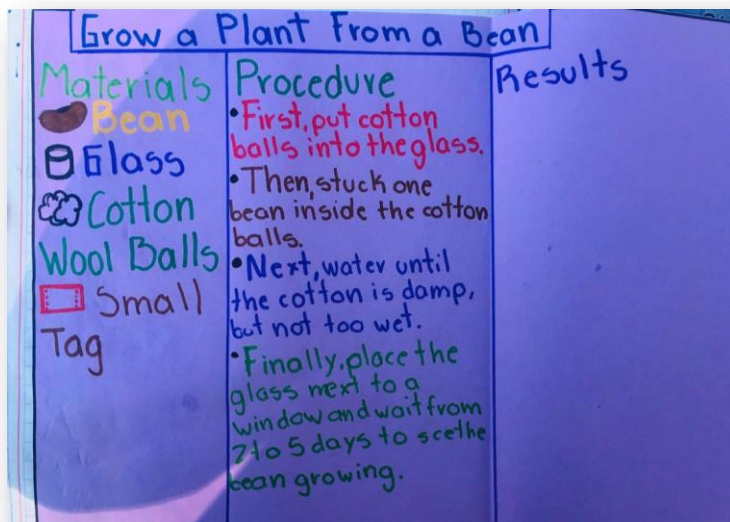 Grow a Plant From a Bean
Materials
Bean
Glass
Cotton
Wool Balls
Small
Tag
Procedure
•First, put cotton
balls into the glass.
•Then, stuck one
bean inside the cotton
balls.
•Next, water until
the cotton is damp,
but not too wet.
•Finally, place the
glass next to a
window and wait from
7 to 5 days to see the
bean growing.
Results